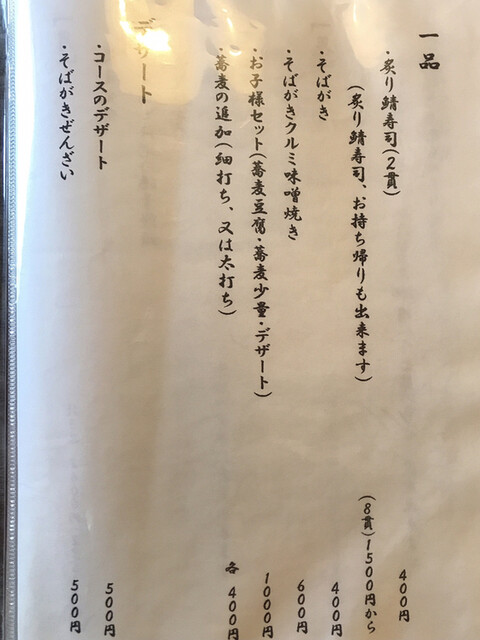 一品
・炙り鯖寿司(2貫) 400円
(炙り鯖寿司、お持ち帰りも出来ます) (8貫)1500円から
・そばがき 400円
・そばがきクルミ味噌焼き 600円
・お子様セット(蕎麦豆腐・蕎麦少量・デザート) 1000円
・蕎麦の追加(細打ち、又は太打ち) 各400円
デザート
・コースのデザート 500円
・そばがきぜんざい 500円